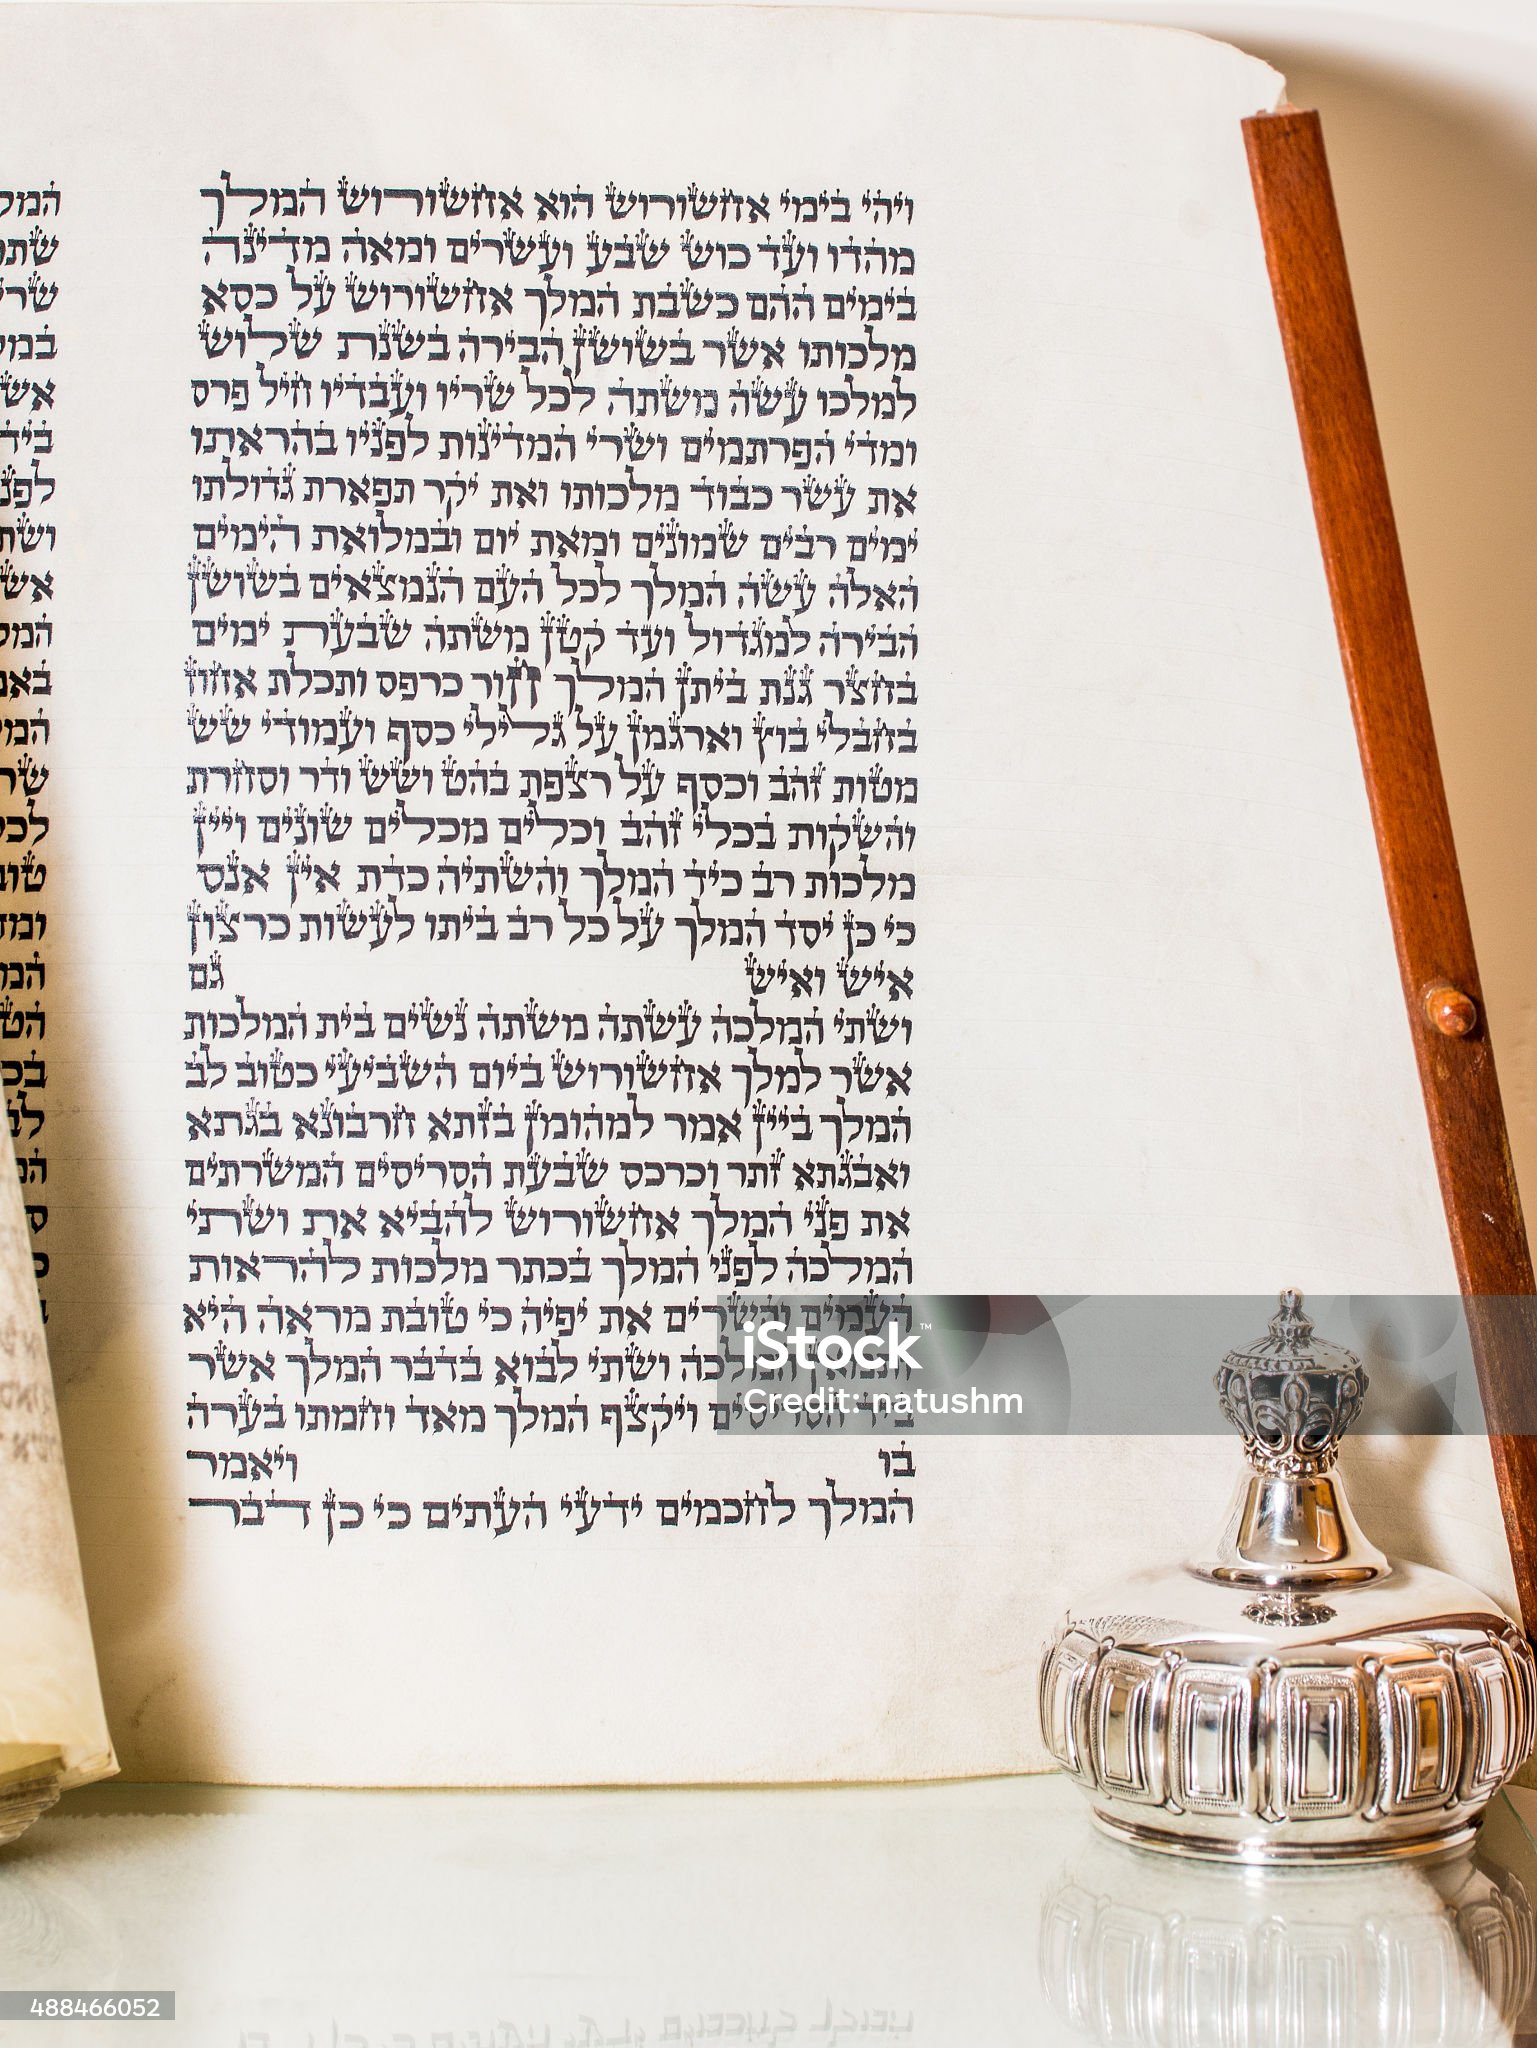 ויהי בימי אחשורוש הוא אחשורוש המלך
מהדו ועד כוש שבע ועשרים ומאה מדינה
בימים ההם כשבת המלך אחשורוש על כסא
מלכותו אשר בשושן הבירה בשנת שלוש
למלכו עשה משתה לכל שריו ועבדיו חיל פרס
ומדי הפרתמים ושרי המדינות לפניו בהראתו
את עשר כבוד מלכותו ואת יקר תפארת גדולתו
ימים רבים שמונים ומאת יום ובמלואת הימים
האלה עשה המלך לכל העם הנמצאים בשושן
הבירה למגדול ועד קטן משתה שבעת ימים
בחצר גנת ביתן המלך חור כרפס ותכלת אחוז
בחבלי בוץ וארגמן על גלילי כסף ועמודי שש
מטות זהב וכסף על רצפת בהט ושש ודר וסחרת
והשקות בכלי זהב וכלים מכלים שונים ויין
מלכות רב כיד המלך והשתיה כדת אין אנס
כי כן יסד המלך על כל רב ביתו לעשות כרצון
איש ואיש גם
ושתי המלכה עשתה משתה נשים בית המלכות
אשר למלך אחשורוש ביום השביעי כטוב לב
המלך ביין אמר למהומן בזתא חרבונא בגתא
ואבגתא זתר וכרכס שבעת הסריסים המשרתים
את פני המלך אחשורוש להביא את ושתי
המלכה לפני המלך בכתר מלכות להראות
העמים והשרים את יפיה כי טובת מראה היא
ותמאן המלכה ושתי לבוא בדבר המלך אשר
ביד הסריסים ויקצף המלך מאד וחמתו בערה
בו ויאמר
המלך לחכמים ידעי העתים כי כן דבר
iStock™
Credit: natushm
488466052